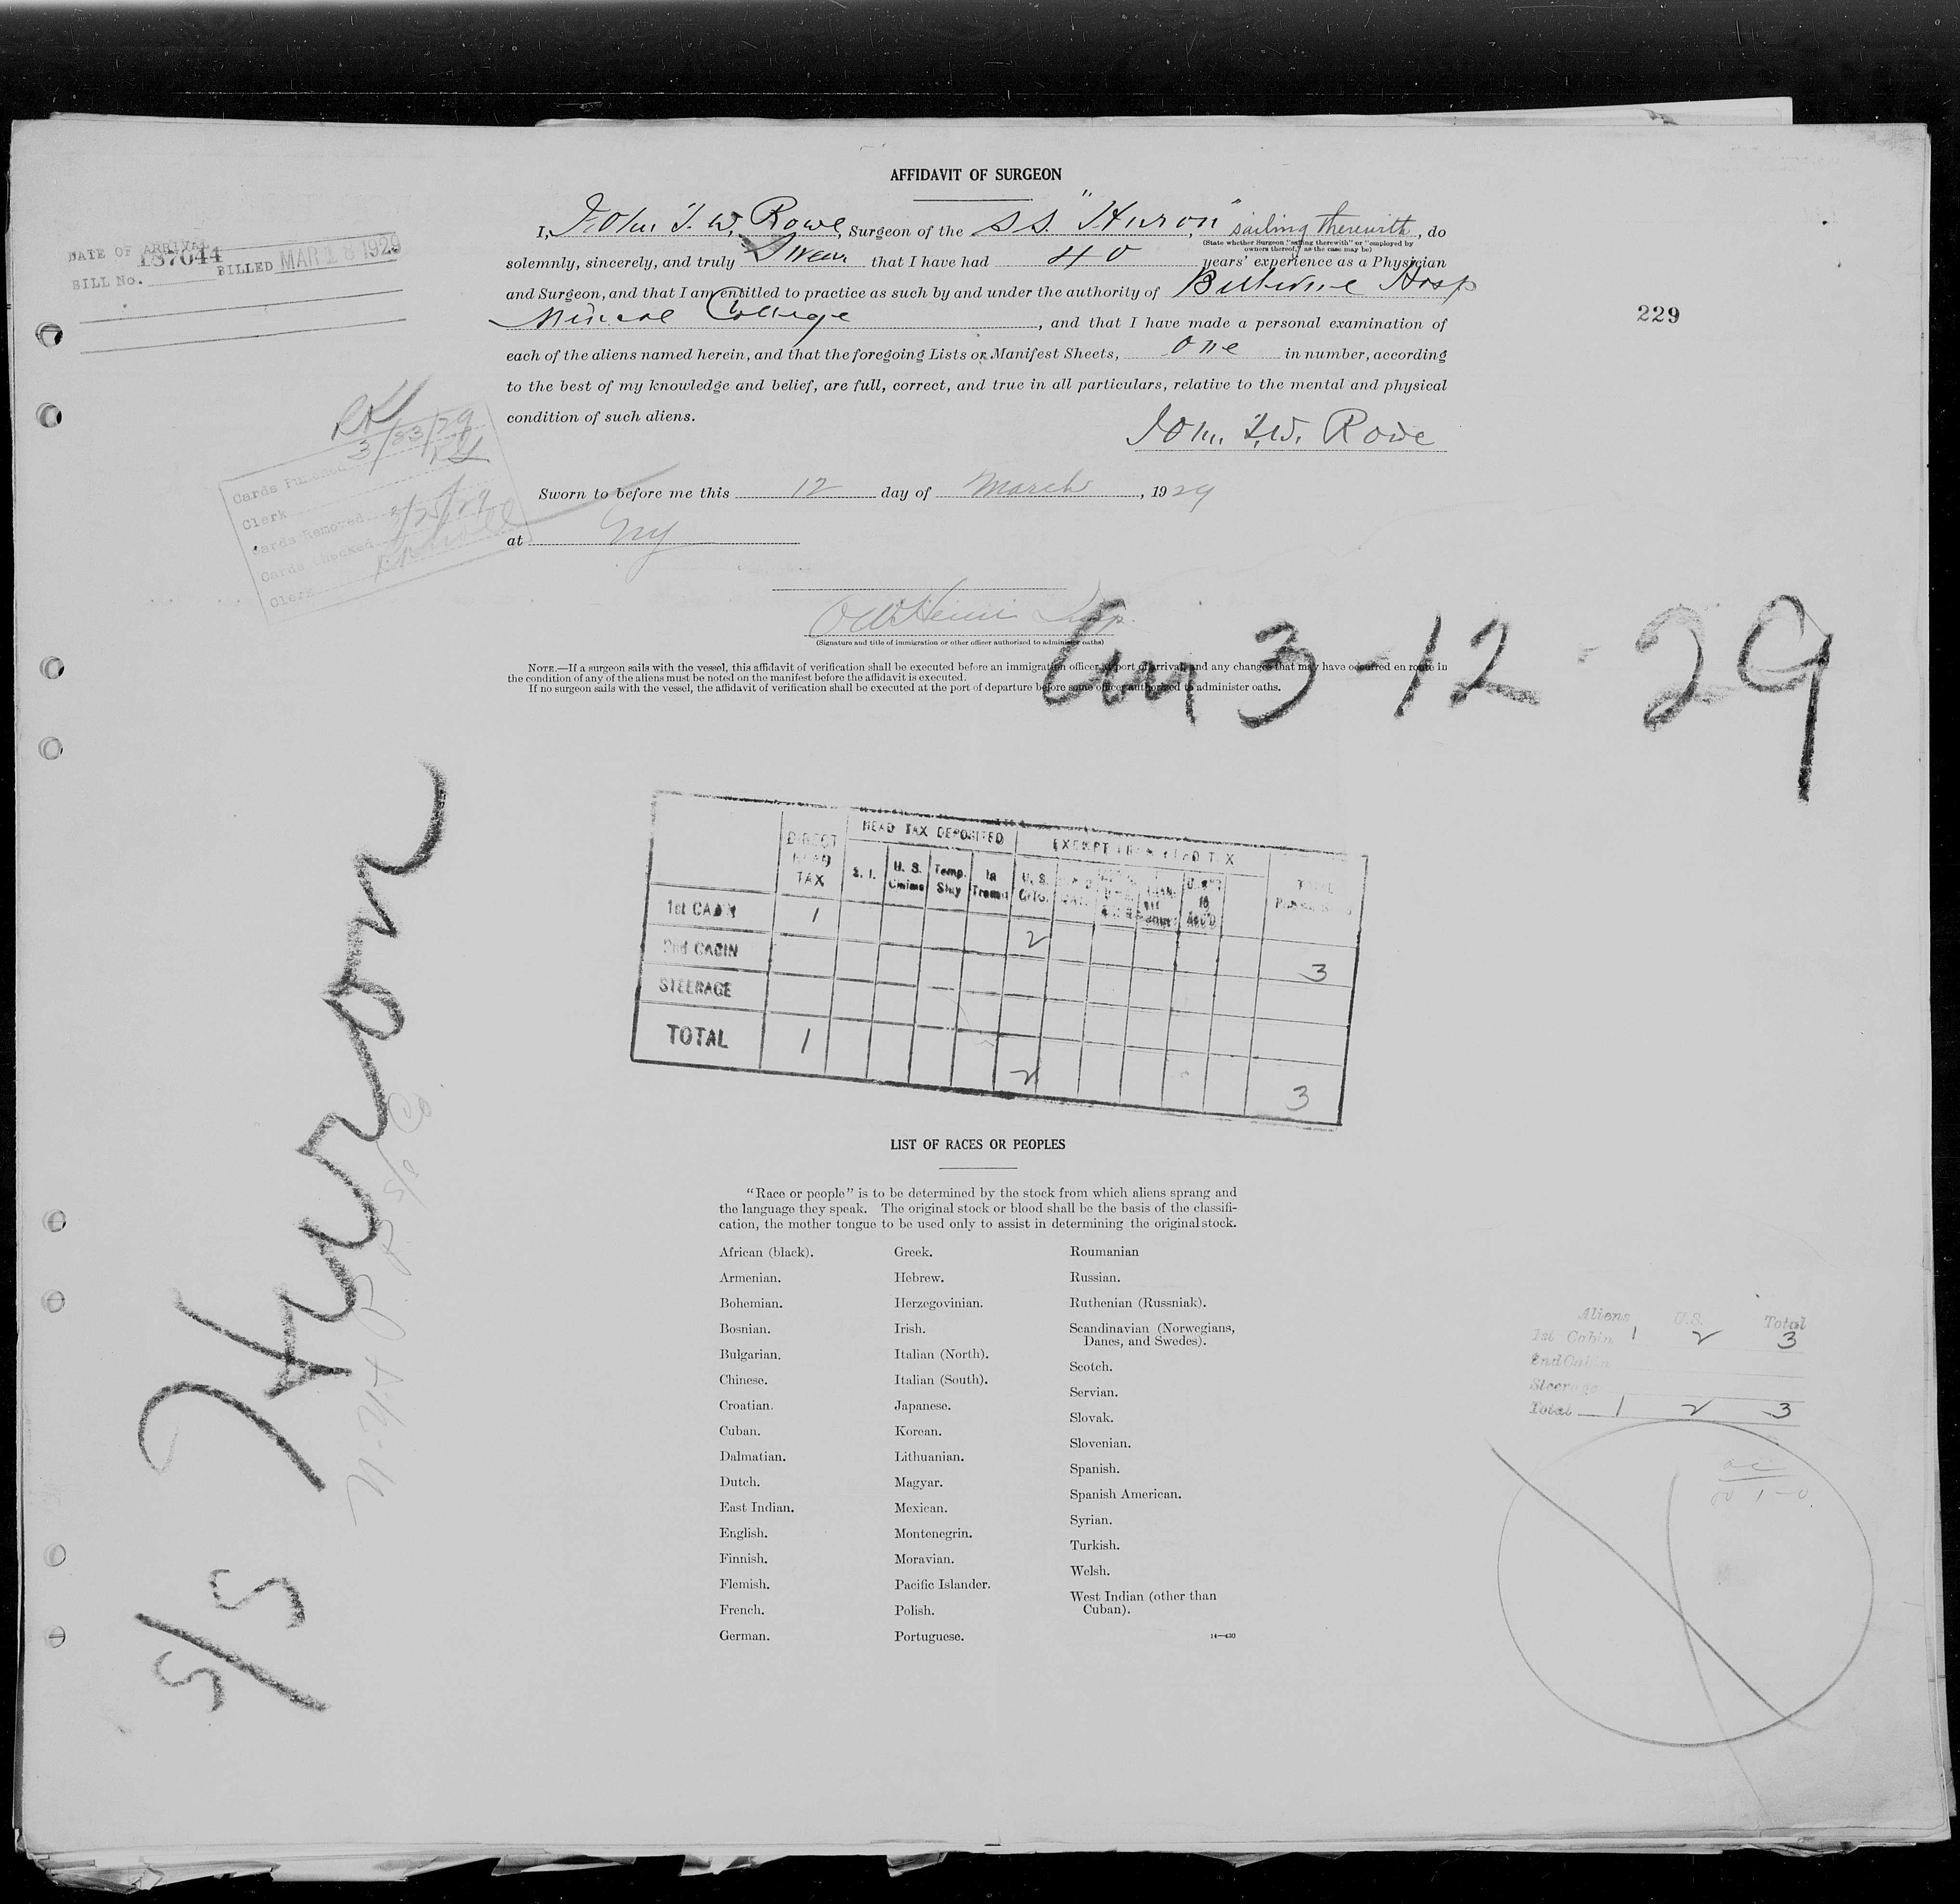 AFFIDAVIT OF SURGEON
I, John T. W. Rowe, Surgeon of the S.S. "Huron" sailing therewith, do
(State whether Surgeon "sailing therewith" or "employed by
owners thereof," as the case may be)
solemnly, sincerely, and truly Swear that I have had 40 years' experience as a Physician
and Surgeon, and that I am entitled to practice as such by and under the authority of Hosp
College, and that I have made a personal examination of
each of the aliens named herein, and that the foregoing Lists or Manifest Sheets, One in number, according
to the best of my knowledge and belief, are full, correct, and true in all particulars, relative to the mental and physical
condition of such aliens.
John T. W. Rowe
Sworn to before me this 12 day of March, 1929
at NY
(Signature and title of immigration or other officer authorized to administer oaths)
NOTE.—If a surgeon sails with the vessel, this affidavit of verification shall be executed before an immigration officer at port of arrival and any changes that may have occurred en route in
the condition of any of the aliens must be noted on the manifest before the affidavit is executed.
If no surgeon sails with the vessel, the affidavit of verification shall be executed at the port of departure before some officer authorized to administer oaths.
DATE OF ARRIVAL
187044
BILL No. BILLED MAR 18 1929
229
Cards Punched 3/23/29
Clerk
Cards Removed 3/25/29
Cards Checked
Clerk
3-12-29
S/S Huron
DIRECT HEAD TAX
HEAD TAX DEPOSITED
EXEMPT FROM HEAD TAX
S. I.
U. S. Claims
Temp. Stay
In Transit
U. S.
TOTAL
1st CABIN 1 2 3
2nd CABIN
STEERAGE
TOTAL 1 2 3
LIST OF RACES OR PEOPLES
"Race or people" is to be determined by the stock from which aliens sprang and
the language they speak. The original stock or blood shall be the basis of the classifi-
cation, the mother tongue to be used only to assist in determining the original stock.
African (black).
Armenian.
Bohemian.
Bosnian.
Bulgarian.
Chinese.
Croatian.
Cuban.
Dalmatian.
Dutch.
East Indian.
English.
Finnish.
Flemish.
French.
German.
Greek.
Hebrew.
Herzegovinian.
Irish.
Italian (North).
Italian (South).
Japanese.
Korean.
Lithuanian.
Magyar.
Mexican.
Montenegrin.
Moravian.
Pacific Islander.
Polish.
Portuguese.
Roumanian
Russian.
Ruthenian (Russniak).
Scandinavian (Norwegians,
Danes, and Swedes).
Scotch.
Servian.
Slovak.
Slovenian.
Spanish.
Spanish American.
Syrian.
Turkish.
Welsh.
West Indian (other than
Cuban).
14—430
Aliens U.S. Total
1st Cabin 1 2 3
2nd Cabin
Steerage
Total 1 2 3